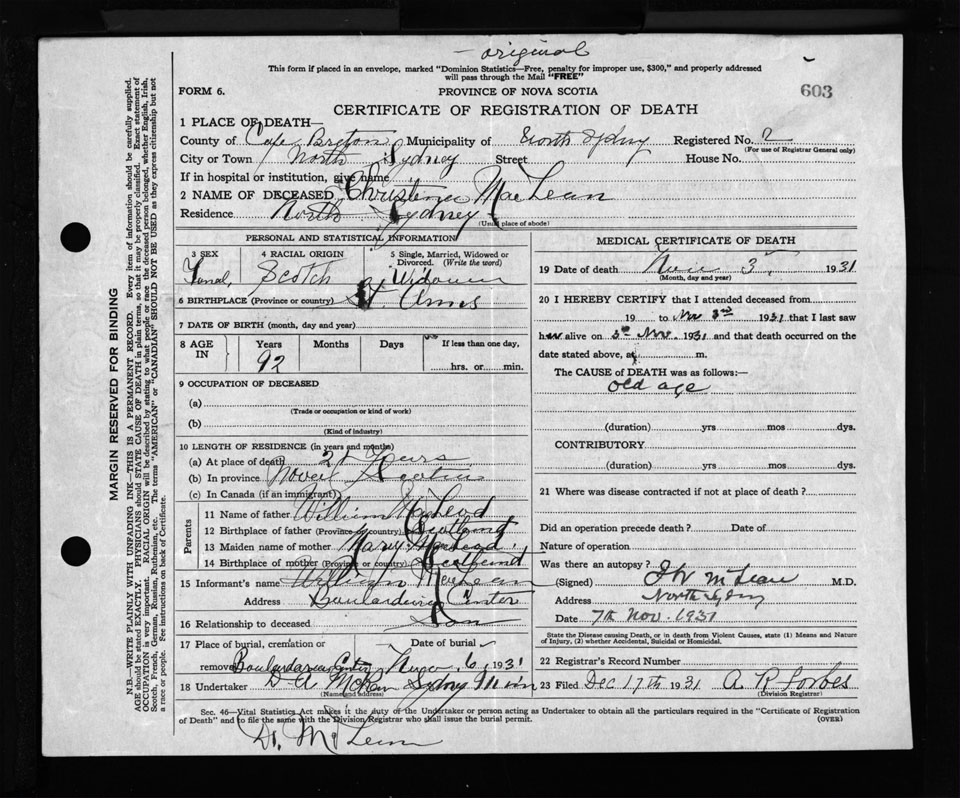 original
This form if placed in an envelope, marked "Dominion Statistics—Free, penalty for improper use, $300," and properly addressed
will pass through the Mail "FREE"
FORM 6. PROVINCE OF NOVA SCOTIA 603
CERTIFICATE OF REGISTRATION OF DEATH
1 PLACE OF DEATH—
County of Cape Breton Municipality of North Sydney Registered No. 2
(For use of Registrar General only)
City or Town North Sydney Street House No.
If in hospital or institution, give name
2 NAME OF DECEASED Christena MacLean
Residence North Sydney
(Usual place of abode)
PERSONAL AND STATISTICAL INFORMATION
3 SEX 4 RACIAL ORIGIN 5 Single, Married, Widowed or Divorced. (Write the word)
Femal, Scotch
6 BIRTHPLACE (Province or country) St Anns
7 DATE OF BIRTH (month, day and year)
8 AGE IN Years Months Days If less than one day,
92 hrs. or min.
9 OCCUPATION OF DECEASED
(a)
(Trade or occupation or kind of work)
(b)
(Kind of industry)
10 LENGTH OF RESIDENCE (in years and months)
(a) At place of death Years
(b) In province Nova Scotia
(c) In Canada (if an immigrant)
Parents
11 Name of father William McLeod
12 Birthplace of father (Province or country) Scotland
13 Maiden name of mother Mary
14 Birthplace of mother (Province or country) Scotland
15 Informant's name William MacLean
Address Boulardarie Center
16 Relationship to deceased Son
17 Place of burial, cremation or Date of burial
removal Boularderie Center 6, 1931
18 Undertaker D A Sydney Mines
(Name and address)
MEDICAL CERTIFICATE OF DEATH
19 Date of death Nov 3, 1931
(Month, day and year)
20 I HEREBY CERTIFY that I attended deceased from
19 to Nov 3rd 1931 that I last saw
her alive on 3rd Nov. 1931 and that death occurred on the
date stated above, at m.
The CAUSE of DEATH was as follows:—
old age
(duration) yrs mos. dys.
CONTRIBUTORY
(duration) yrs. mos. dys.
21 Where was disease contracted if not at place of death?
Did an operation precede death? Date of
Nature of operation
Was there an autopsy?
(Signed) McLean M.D.
Address North Sydney
Date 7th Nov. 1931
State the Disease causing Death, or in death from Violent Causes, state (1) Means and Nature
of Injury, (2) whether Accidental, Suicidal or Homicidal.
22 Registrar's Record Number
23 Filed Dec 17th 1931 A R Forbes
(Division Registrar)
Sec. 46—Vital Statistics Act makes it the duty of the Undertaker or person acting as Undertaker to obtain all the particulars required in the "Certificate of Registration
of Death" and to file the same with the Division Registrar who shall issue the burial permit. (OVER)
Dr. McLean
MARGIN RESERVED FOR BINDING
N.B.—WRITE PLAINLY WITH UNFADING INK—THIS IS A PERMANENT RECORD. Every item of information should be carefully supplied.
AGE should be stated EXACTLY. PHYSICIANS should STATE CAUSE OF DEATH in plain terms, so that it may be properly classified. Exact statement of
OCCUPATION is very important. RACIAL ORIGIN will be described by stating to what people or race the deceased person belonged, whether English, Irish,
Scotch, French, German, Russian, Ruthenian, etc. The terms "AMERICAN" or "CANADIAN" SHOULD NOT BE USED as they express citizenship but not
a race or people. See instructions on back of Certificate.